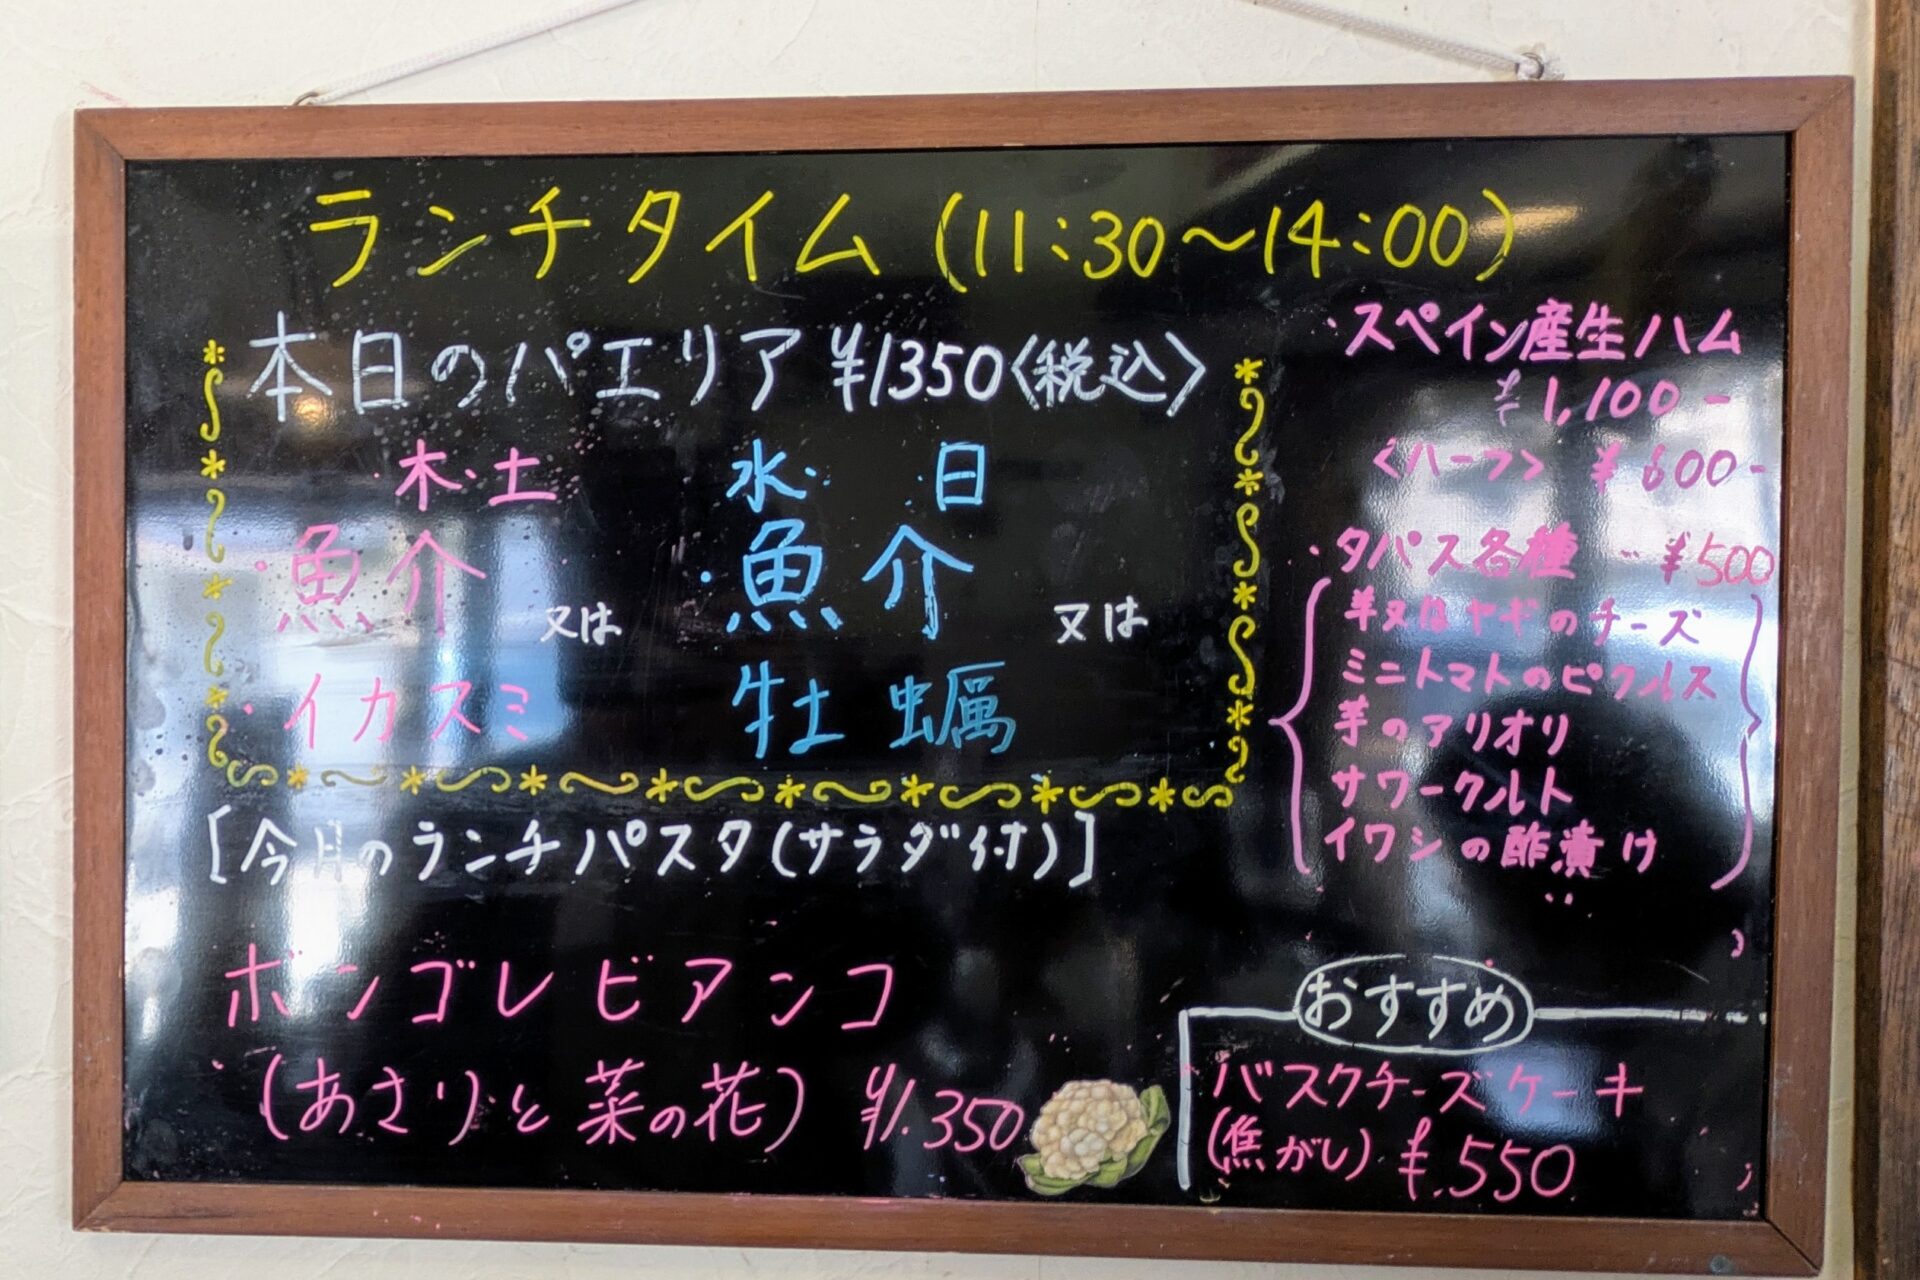 ランチタイム (11:30〜14:00)
本日のパエリア ¥1350〈税込〉
・木・土
・魚介 又は
・イカスミ
水・ ・日
・魚介 又は
牡蠣
[今月のランチパスタ(サラダ付)]
ボンゴレビアンコ
(あさりと菜の花) ¥1.350
・スペイン産生ハム
¥1,100-
〈ハーフ〉 ¥600-
・タパス各種 ¥500
羊又はヤギのチーズ
ミニトマトのピクルス
芋のアリオリ
サワークルト
イワシの酢漬け
おすすめ
バスクチーズケーキ
(焦がし) ¥.550